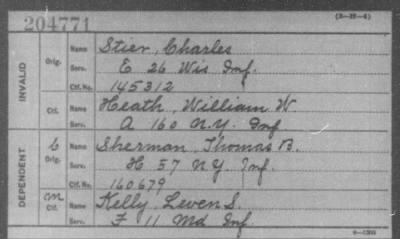 204771 (3-29-4)
INVALID Orig. Name Stier, Charles
Serv. E 26 Wis Inf.
Ctf. No. 145312
Ctf. Name Heath, William W
Serv. A 160 N.Y. Inf
DEPENDENT Orig. Name Sherman, Thomas B.
Serv. H 57 N.Y. Inf.
Ctf. No. 160679
m Ctf. Name Kelly, Leven S.
Serv. F 11 Md Inf.